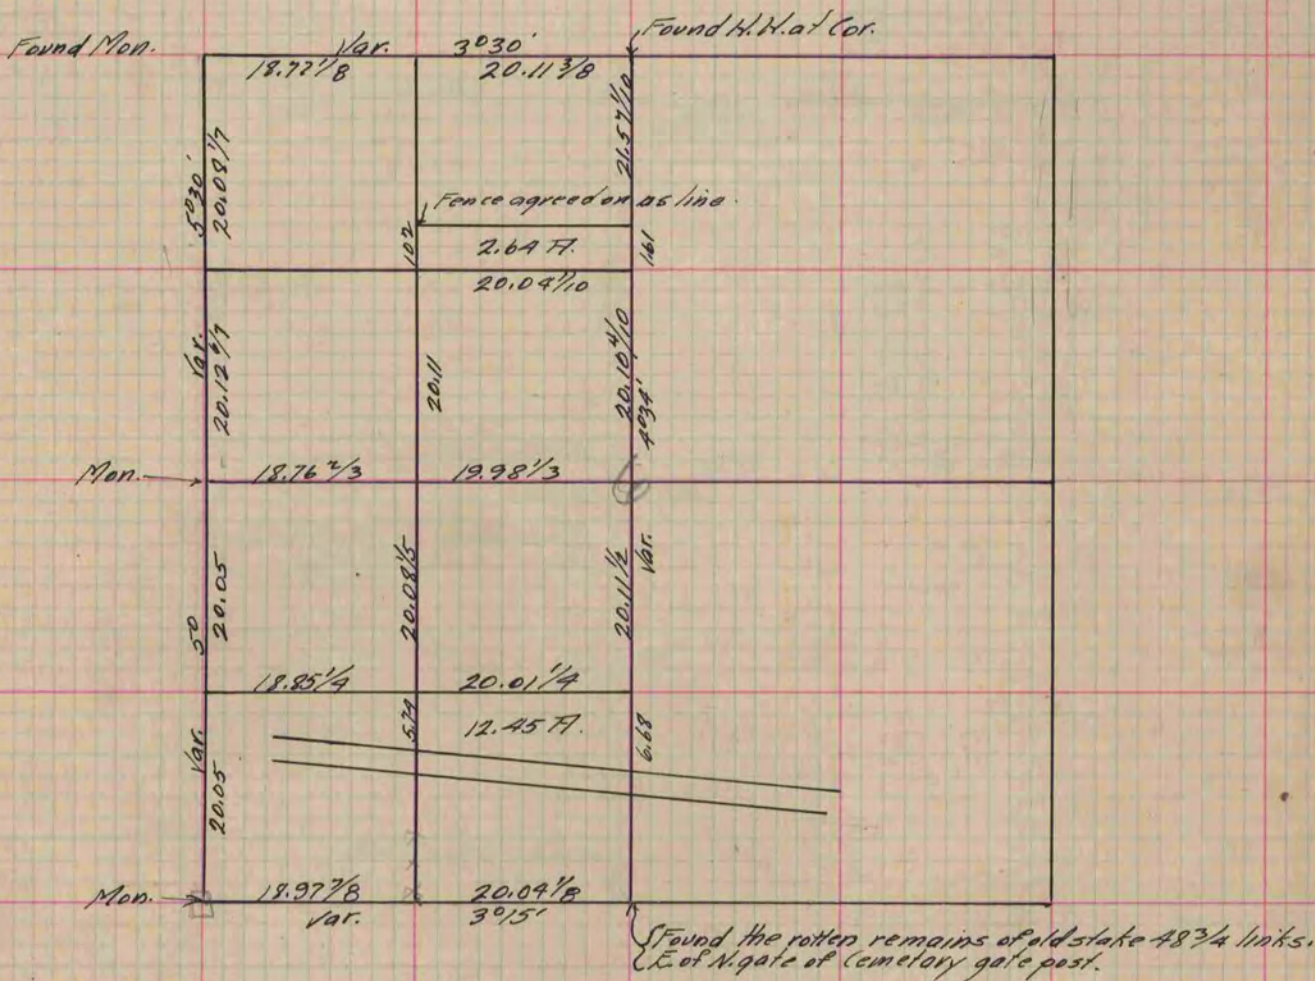 Found Mon.
Var. 3°30'
Found H.H. at Cor.
18.72 1/8
20.11 3/8
5°30'
20.08 1/7
21.57 1/10
Fence agreed on as line.
102
2.64 A.
1.61
20.04 1/10
Var.
20.11
20.10 4/10
4°34'
Mon.
18.76 2/3
19.98 1/3
6
5°
20.05
20.08 1/5
20.11 1/2
Var.
18.85 1/4
20.01 1/4
Var.
20.05
12.45 A.
6.68
Mon.
18.97 7/8
20.04 1/8
Var. 3°15'
Found the rotten remains of old stake 48 3/4 links.
E. of N. gate of Cemetary gate post.